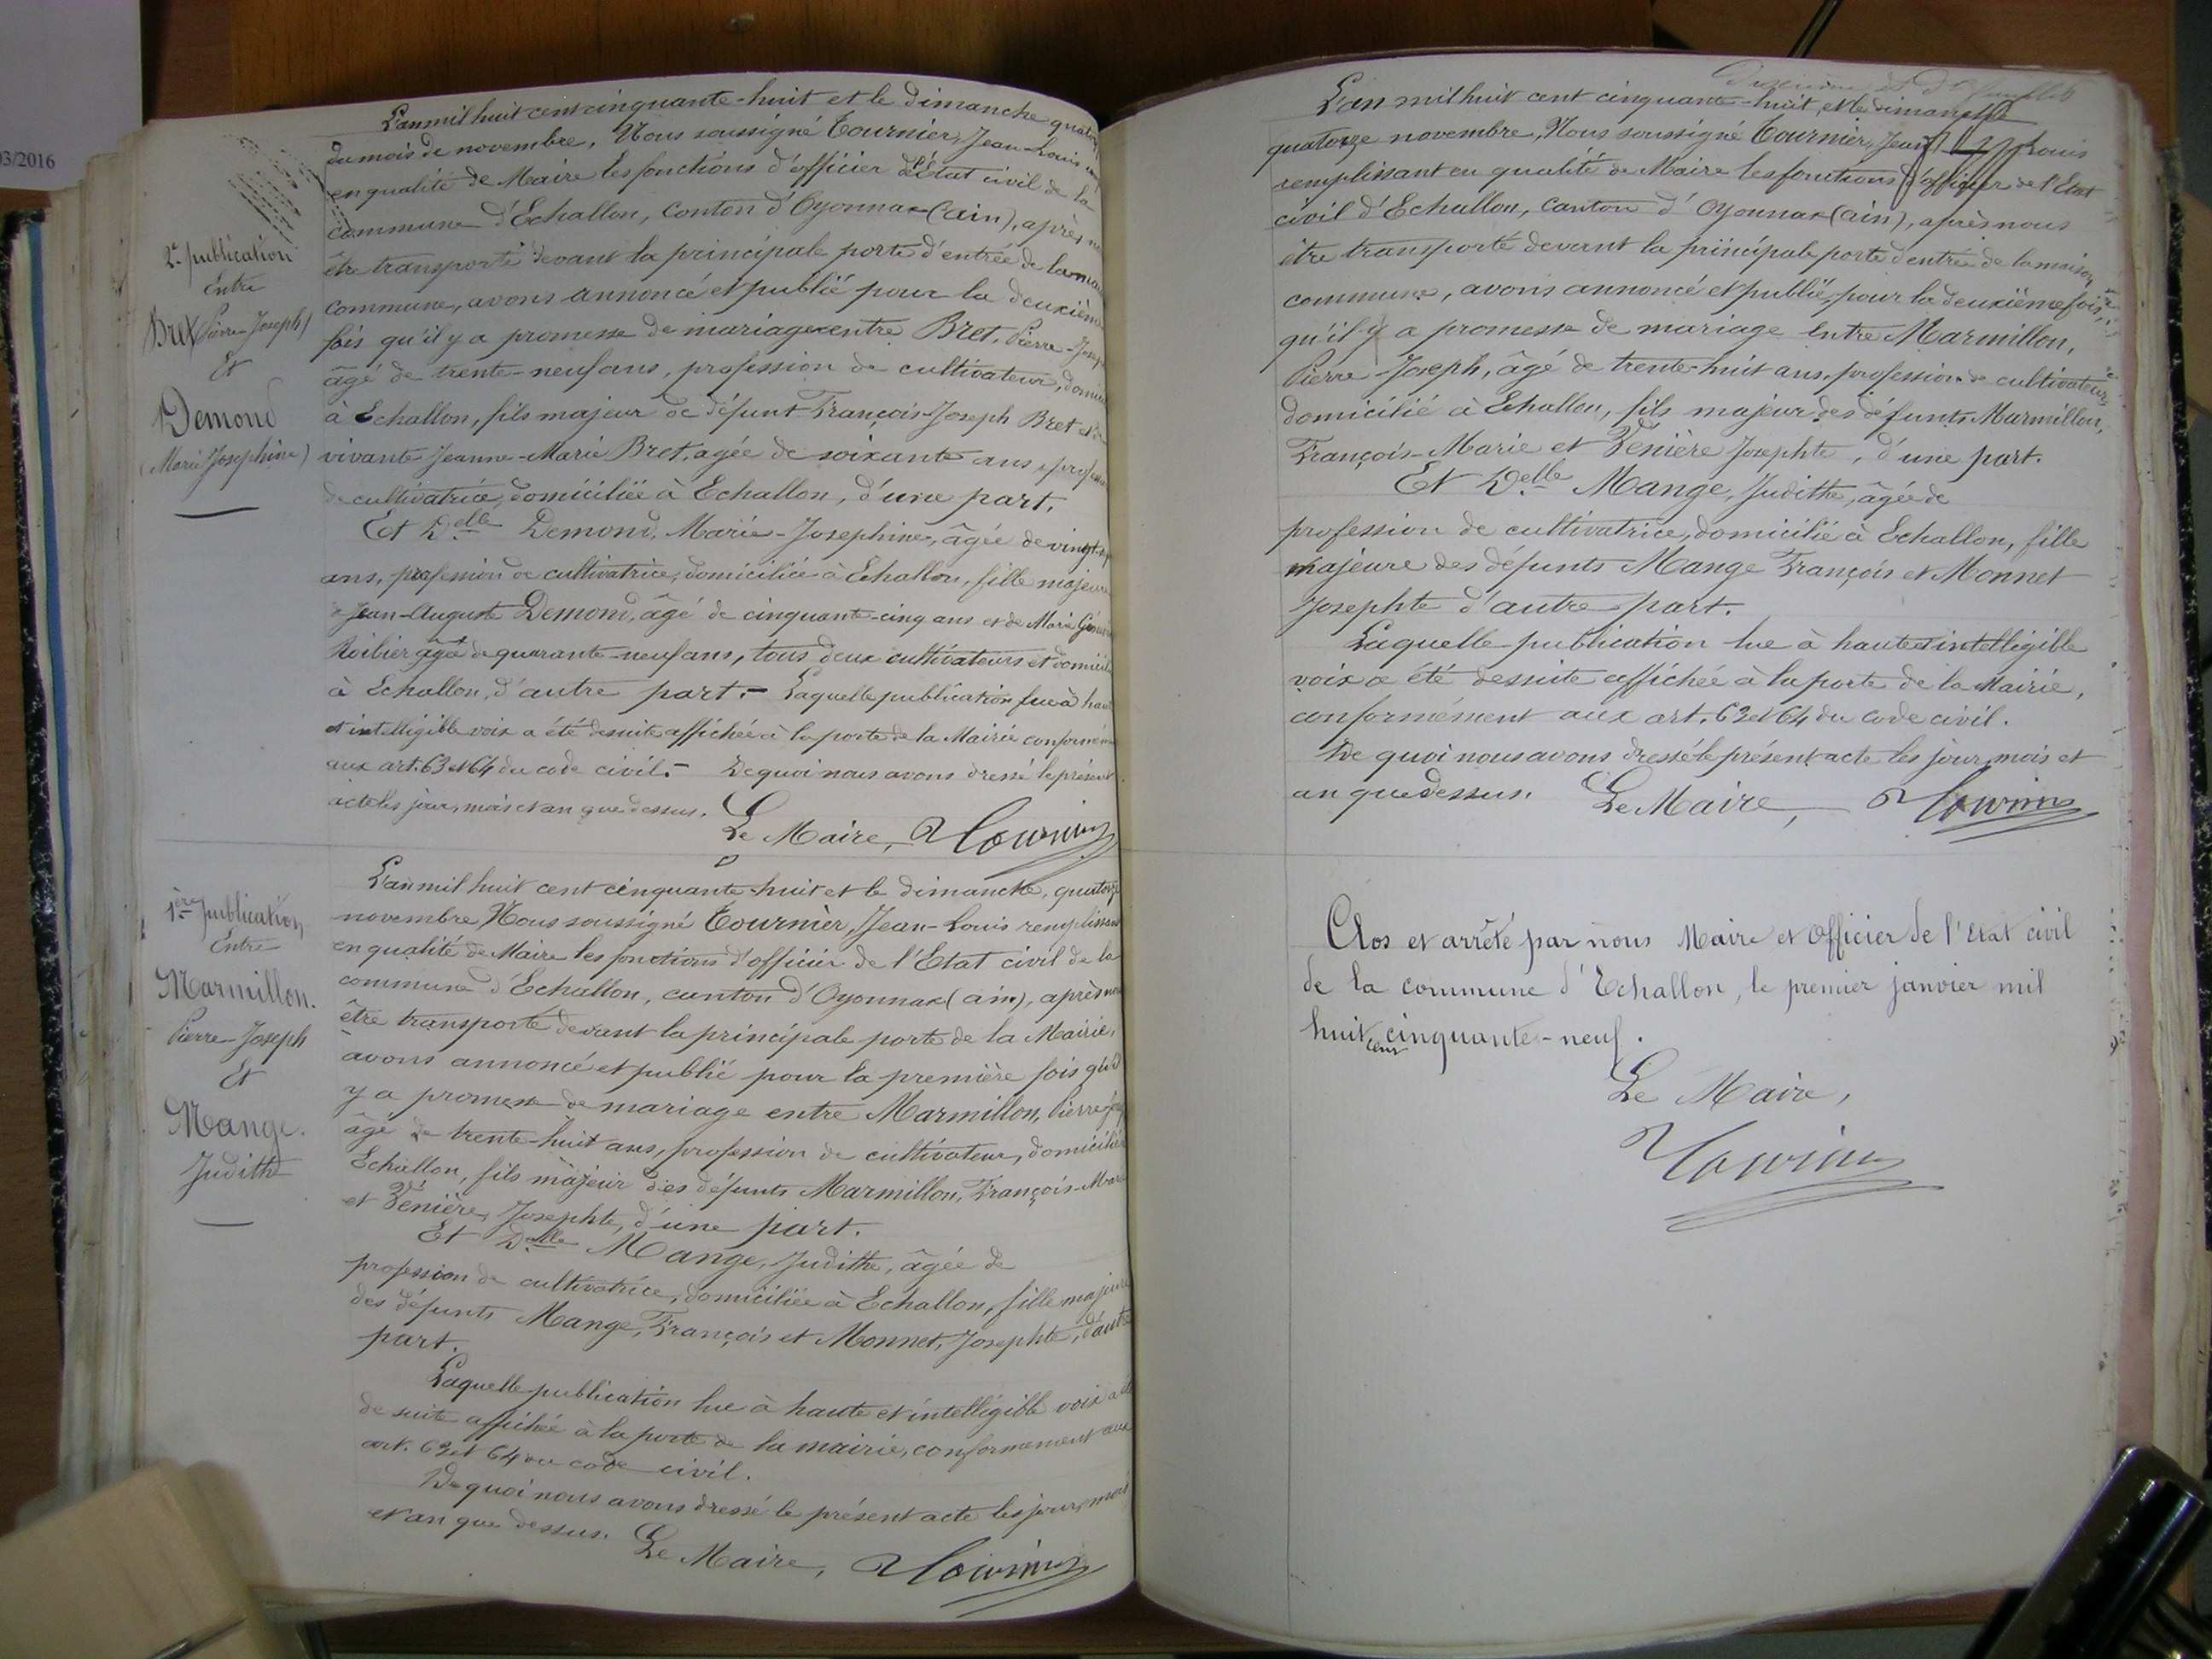 03/2016
L'an mil huit cent cinquante-huit et le dimanche quatorze
du mois de novembre, Nous soussigné Tournier, Jean-Louis
en qualité de Maire les fonctions d'officier de l'Etat civil de la
commune d'Echallon, conton d'Oyonnax (ain), après
être transporté devant la principale porte d'entrée de la
commune, avons annoncé et publié pour la deuxième
fois qu'il y a promesse de mariage entre Bret, Pierre-Joseph
âgé de trente-neuf ans, profession de cultivateur,
à Echallon, fils majeur de défunt François-Joseph Bret et de
vivante Jeanne-Marie Bret, agée de soixante ans,
de cultivatrice, domiciliée à Echallon, d'une part.
Et Delle Demond, Marie-Josephine, âgée de
ans, profession de cultivatrice, domiciliée à Echallon, fille majeure
de Jean-Auguste Demond, âgé de cinquante-cinq ans et de Marie
Roibier âgée de quarante-neuf ans, tous deux cultivateurs et
à Echallon, d'autre part. - Laquelle publication lue à haute
et intelligible voix a été desuite affichée à la porte de la Mairie
aux art. 63 et 64 du code civil. - De quoi nous avons dressé le présent
acte les jour, mois et an que dessus.
Le Maire, Tournier
2e publication
Entre
Bret (Pierre-Joseph)
Et
Demond
(Marie Josephine)
L'an mil huit cent cinquante-huit et le dimanche, quatorze
novembre Nous soussigné Tournier, Jean-Louis remplissant
en qualité de Maire les fonctions d'officier de l'Etat civil de la
commune d'Echallon, canton d'Oyonnax (ain), après
être transporté devant la principale porte de la Mairie,
avons annoncé et publié pour la première fois qu'il
y a promesse de mariage entre Marmillon, Pierre
âgé de trente-huit ans, profession de cultivateur, domicilié
Echallon, fils majeur des défunts Marmillon, François-Marie
et Venière, Josephte, d'une part.
Et Delle Mange, Judithe, âgée de
profession de cultivatrice, domiciliée à Echallon, fille majeure
des défunts Mange, François et Monnet, Josephte, d'autre
part.
Laquelle publication lue à haute et intelligible voix a
de suite affichée à la porte de la mairie, conformement aux
art. 63 et 64 du code civil.
De quoi nous avons dressé le présent acte les jour, mois
et an que dessus.
Le Maire, Tournier
1ère publication
Entre
Marmillon.
Pierre-Joseph
Et
Mange.
Judith
L'an mil huit cent cinquante-huit, et le dimanche
quatorze novembre, Nous soussigné Tournier, Jean Louis
remplissant en qualité de Maire les fonctions d'officier de l'Etat
civil d'Echallon, canton d'Oyonnax (ain), après nous
être transporté devant la principale porte d'entrée de la maison
commune, avons annoncé et publié, pour la deuxième fois,
qu'il y a promesse de mariage entre Marmillon,
Pierre-Joseph, âgé de trente-huit ans, profession de cultivateur,
domicilié à Echallon, fils majeur des défunts Marmillon,
François-Marie et Venière Josephte, d'une part.
Et Delle Mange, Judithe, âgée de
profession de cultivatrice, domicilié à Echallon, fille
majeure des défunts Mange François et Monnet
Josephte d'autre part.
Laquelle publication lue à haute et intelligible
voix a été desuite affichée à la porte de la Mairie,
conformément aux art. 63 et 64 du code civil.
De quoi nous avons dressé le présent acte les jour, mois et
an que dessus.
Le Maire, Tournier
Clos et arrêté par nous Maire et Officier de l'Etat civil
de la commune d'Echallon, le premier janvier mil
huit cent cinquante-neuf.
Le Maire,
Tournier